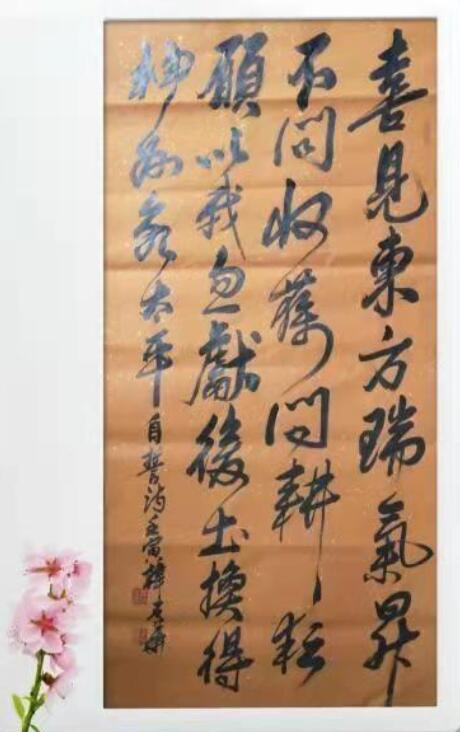 喜見東方瑞氣昇
不問收穫問耕耘
願以我血獻後土換得
神州永太平 自誓詩壬寅